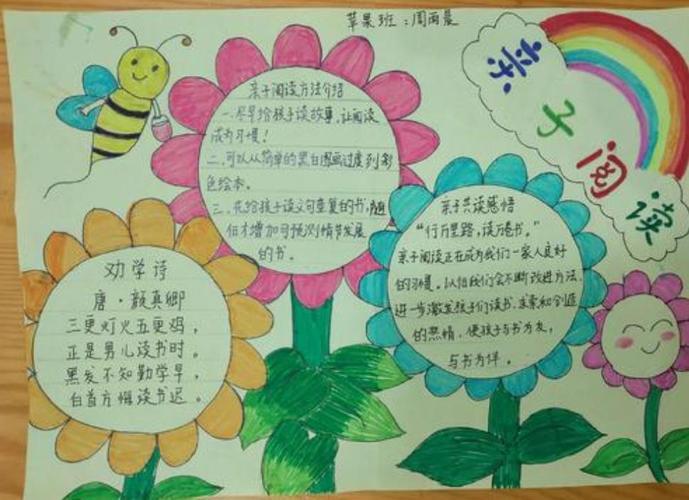 苹果班：周雨晨
亲子阅读
亲子阅读方法介绍
一、尽早给孩子读故事，让阅读
成为习惯！
二、可以从简单的黑白图画过度到彩
色绘本。
三、先给孩子读文句重复的书，随
后才增加可预测情节发展
的书。
劝学诗
唐·颜真卿
三更灯火五更鸡，
正是男儿读书时。
黑发不知勤学早，
白首方悔读书迟。
亲子共读感悟
“行万里路，读万卷书。”
亲子阅读正在成为我们一家人良好
的习惯。以后我们会不断改进方法，
进一步激发孩子们读书、求索和创造
的热情，使孩子与书为友，
与书为伴。